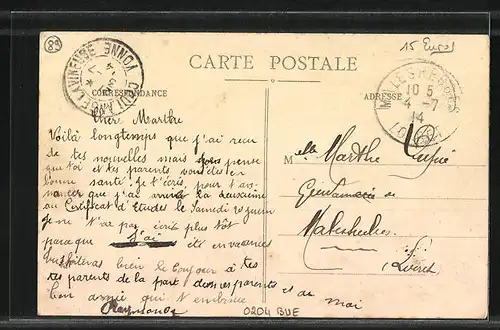 89
15 Euro
CARTE POSTALE
CORRESPONDANCE
ADRESSE
COULANGE LA VINEUSE
YONNE
MALESHERBES
10 5
4 - 7
14
chère Marthe
Voilà longtemps que j'ai reçu
de tes nouvelles mais je pense
que toi et tes parents vous êtes en
bonne santé. Je t'écris, pour t'an-
noncer que j'ai arrivé la deuxième
au Certificat d'Etudes le Samedi 27 juin
Je ne t'ai pas écrit plus tôt
parce que j'ai été en vacances
Tu souhaiteras bien le bonjour à tes
tes parents de la part de mes parents
et de moi
Ton amie qui t'embrasse
Raymonde
Melle Marthe
Gendarmerie de
Malesherbes
Loiret
0204 BUE